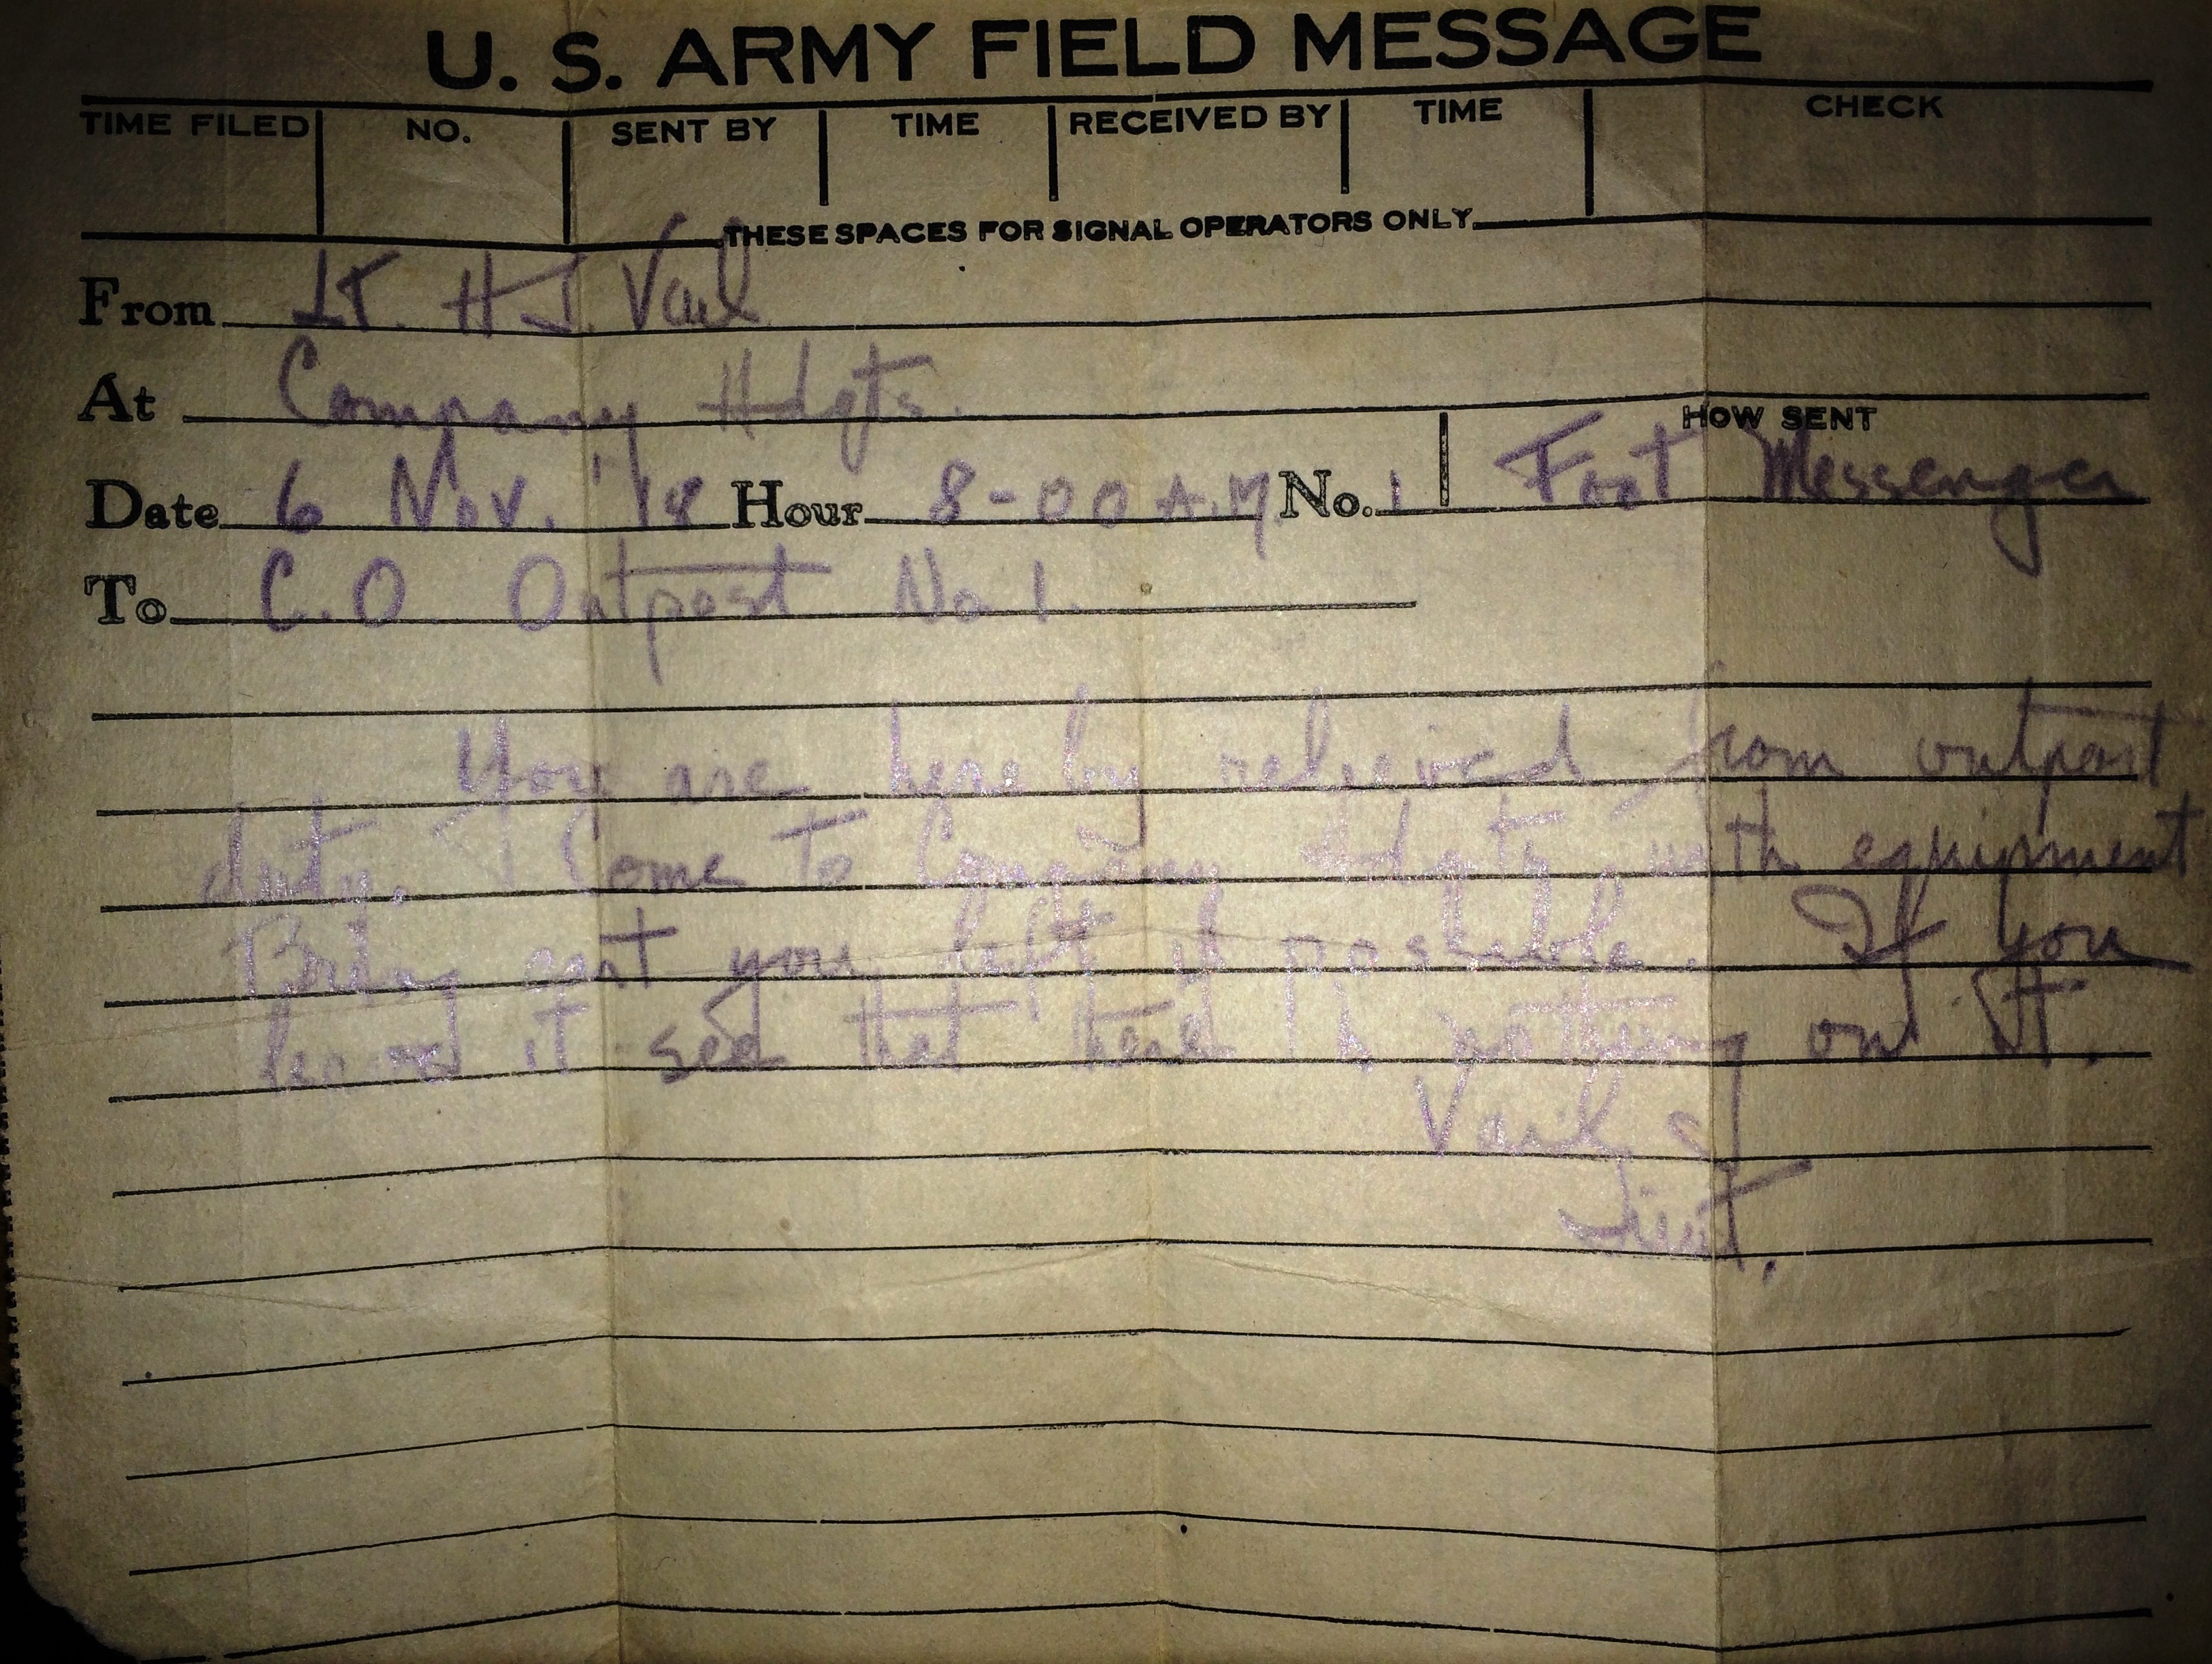 U. S. ARMY FIELD MESSAGE
TIME FILED NO. SENT BY TIME RECEIVED BY TIME CHECK
THESE SPACES FOR SIGNAL OPERATORS ONLY
From Lt. H J. Vail
At Company Hdqts.
HOW SENT
Date 6 Nov. '18 Hour 8-00 A.M. No. 1 Foot Messenger
To C.O Outpost No 1.
You are hereby relieved from outpost
duty. Come to Company Hdqts with equipment
Bring cart you left if possible. If you
leave it see that there is nothing on it.
Vail
Lieut.